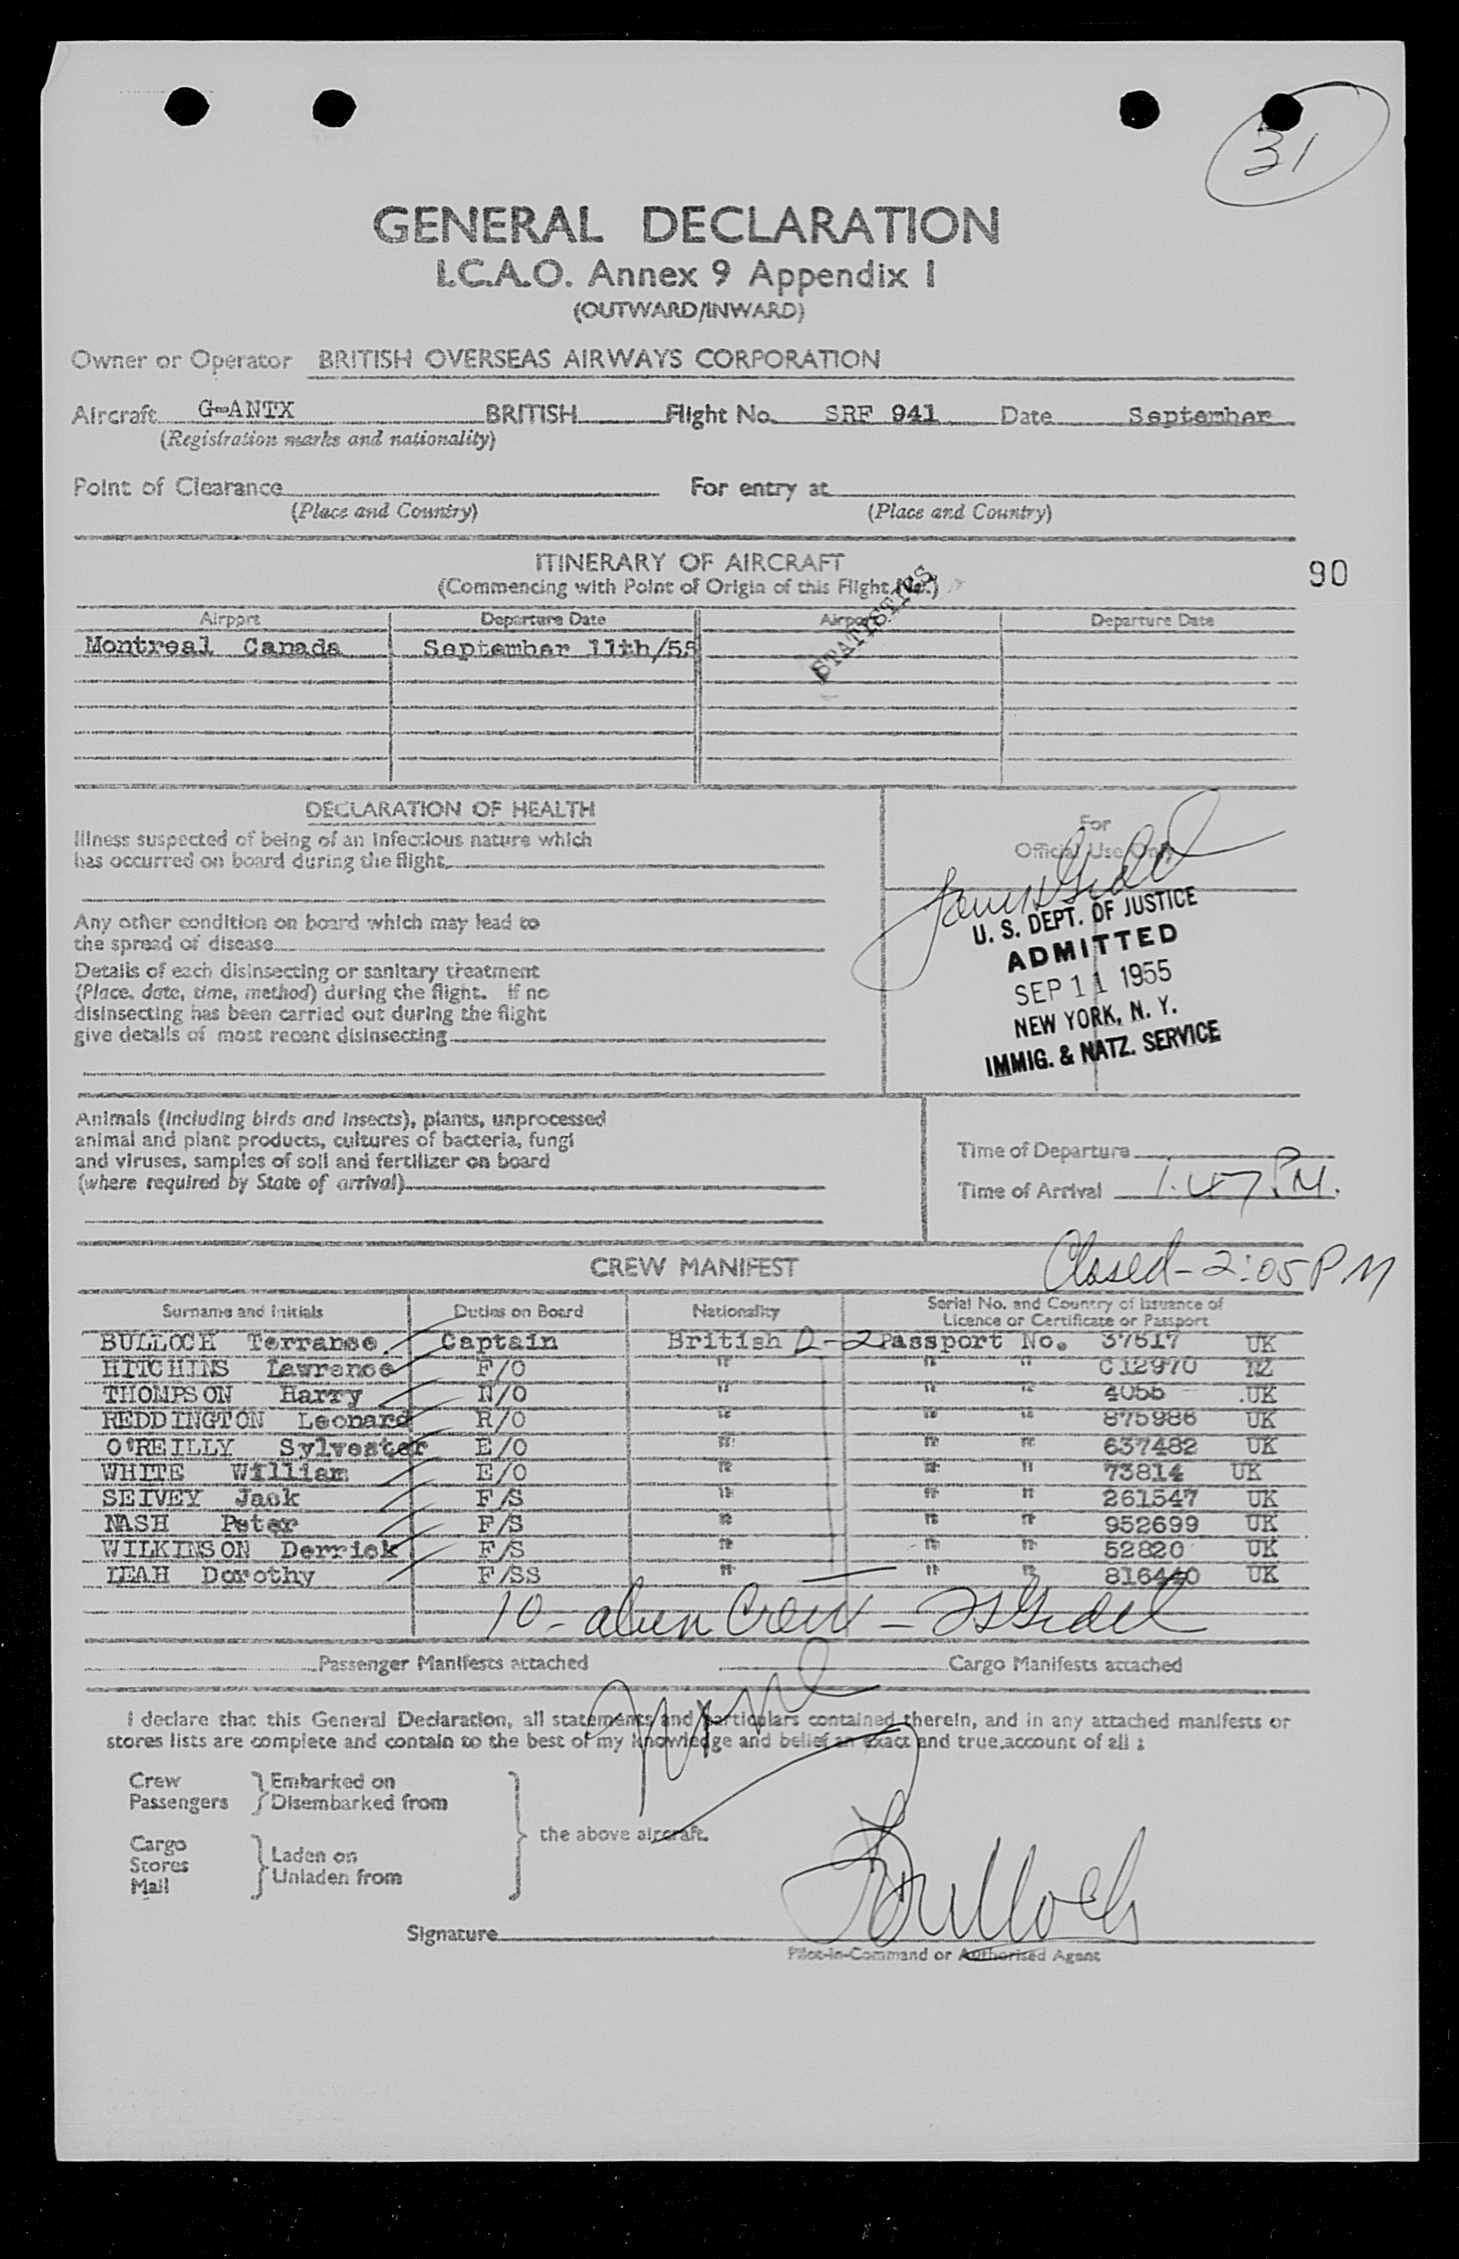 31
GENERAL DECLARATION
I.C.A.O. Annex 9 Appendix 1
(OUTWARD/INWARD)
Owner or Operator BRITISH OVERSEAS AIRWAYS CORPORATION
Aircraft G-ANTX BRITISH Flight No. SRF 941 Date September
(Registration marks and nationality)
Point of Clearance For entry at
(Place and Country) (Place and Country)
ITINERARY OF AIRCRAFT
90
(Commencing with Point of Origin of this Flight No.)
STATISTICS
Airport Departure Date Airport Departure Date
Montreal Canada September 11th/55
DECLARATION OF HEALTH
Illness suspected of being of an infectious nature which
has occurred on board during the flight
Any other condition on board which may lead to
the spread of disease
Details of each disinsecting or sanitary treatment
(Place, date, time, method) during the flight. If no
disinsecting has been carried out during the flight
give details of most recent disinsecting
For
Official Use Only
U. S. DEPT. OF JUSTICE
ADMITTED
SEP 11 1955
NEW YORK, N. Y.
IMMIG. & NATZ. SERVICE
Animals (including birds and insects), plants, unprocessed
animal and plant products, cultures of bacteria, fungi
and viruses, samples of soil and fertilizer on board
(where required by State of arrival)
Time of Departure
Time of Arrival 1.47 P.M.
Closed - 2:05 PM
CREW MANIFEST
Surname and Initials Duties on Board Nationality Serial No. and Country of Issuance of
Licence or Certificate or Passport
BULLOCH Terranse Captain British D-2 Passport No. 37517 UK
HITCHINS Lawrence F/O " " " C 12970 NZ
THOMPSON Harry N/O " " " 4055 UK
REDDINGTON Leonard R/O " " " 875986 UK
O'REILLY Sylvester E/O " " " 637482 UK
WHITE William E/O " " " 73814 UK
SEIVEY Jack F/S " " " 261547 UK
NASH Peter F/S " " " 952699 UK
WILKINSON Derrick F/S " " " 52820 UK
LEAH Dorothy F/SS " " " 816440 UK
10 - alien Crew -
Passenger Manifests attached Cargo Manifests attached
I declare that this General Declaration, all statements and particulars contained therein, and in any attached manifests or
stores lists are complete and contain to the best of my knowledge and belief an exact and true account of all :
Crew Embarked on
Passengers Disembarked from
the above aircraft.
Cargo Laden on
Stores Unladen from
Mail
Signature Bulloch
Pilot-in-Command or Authorised Agent